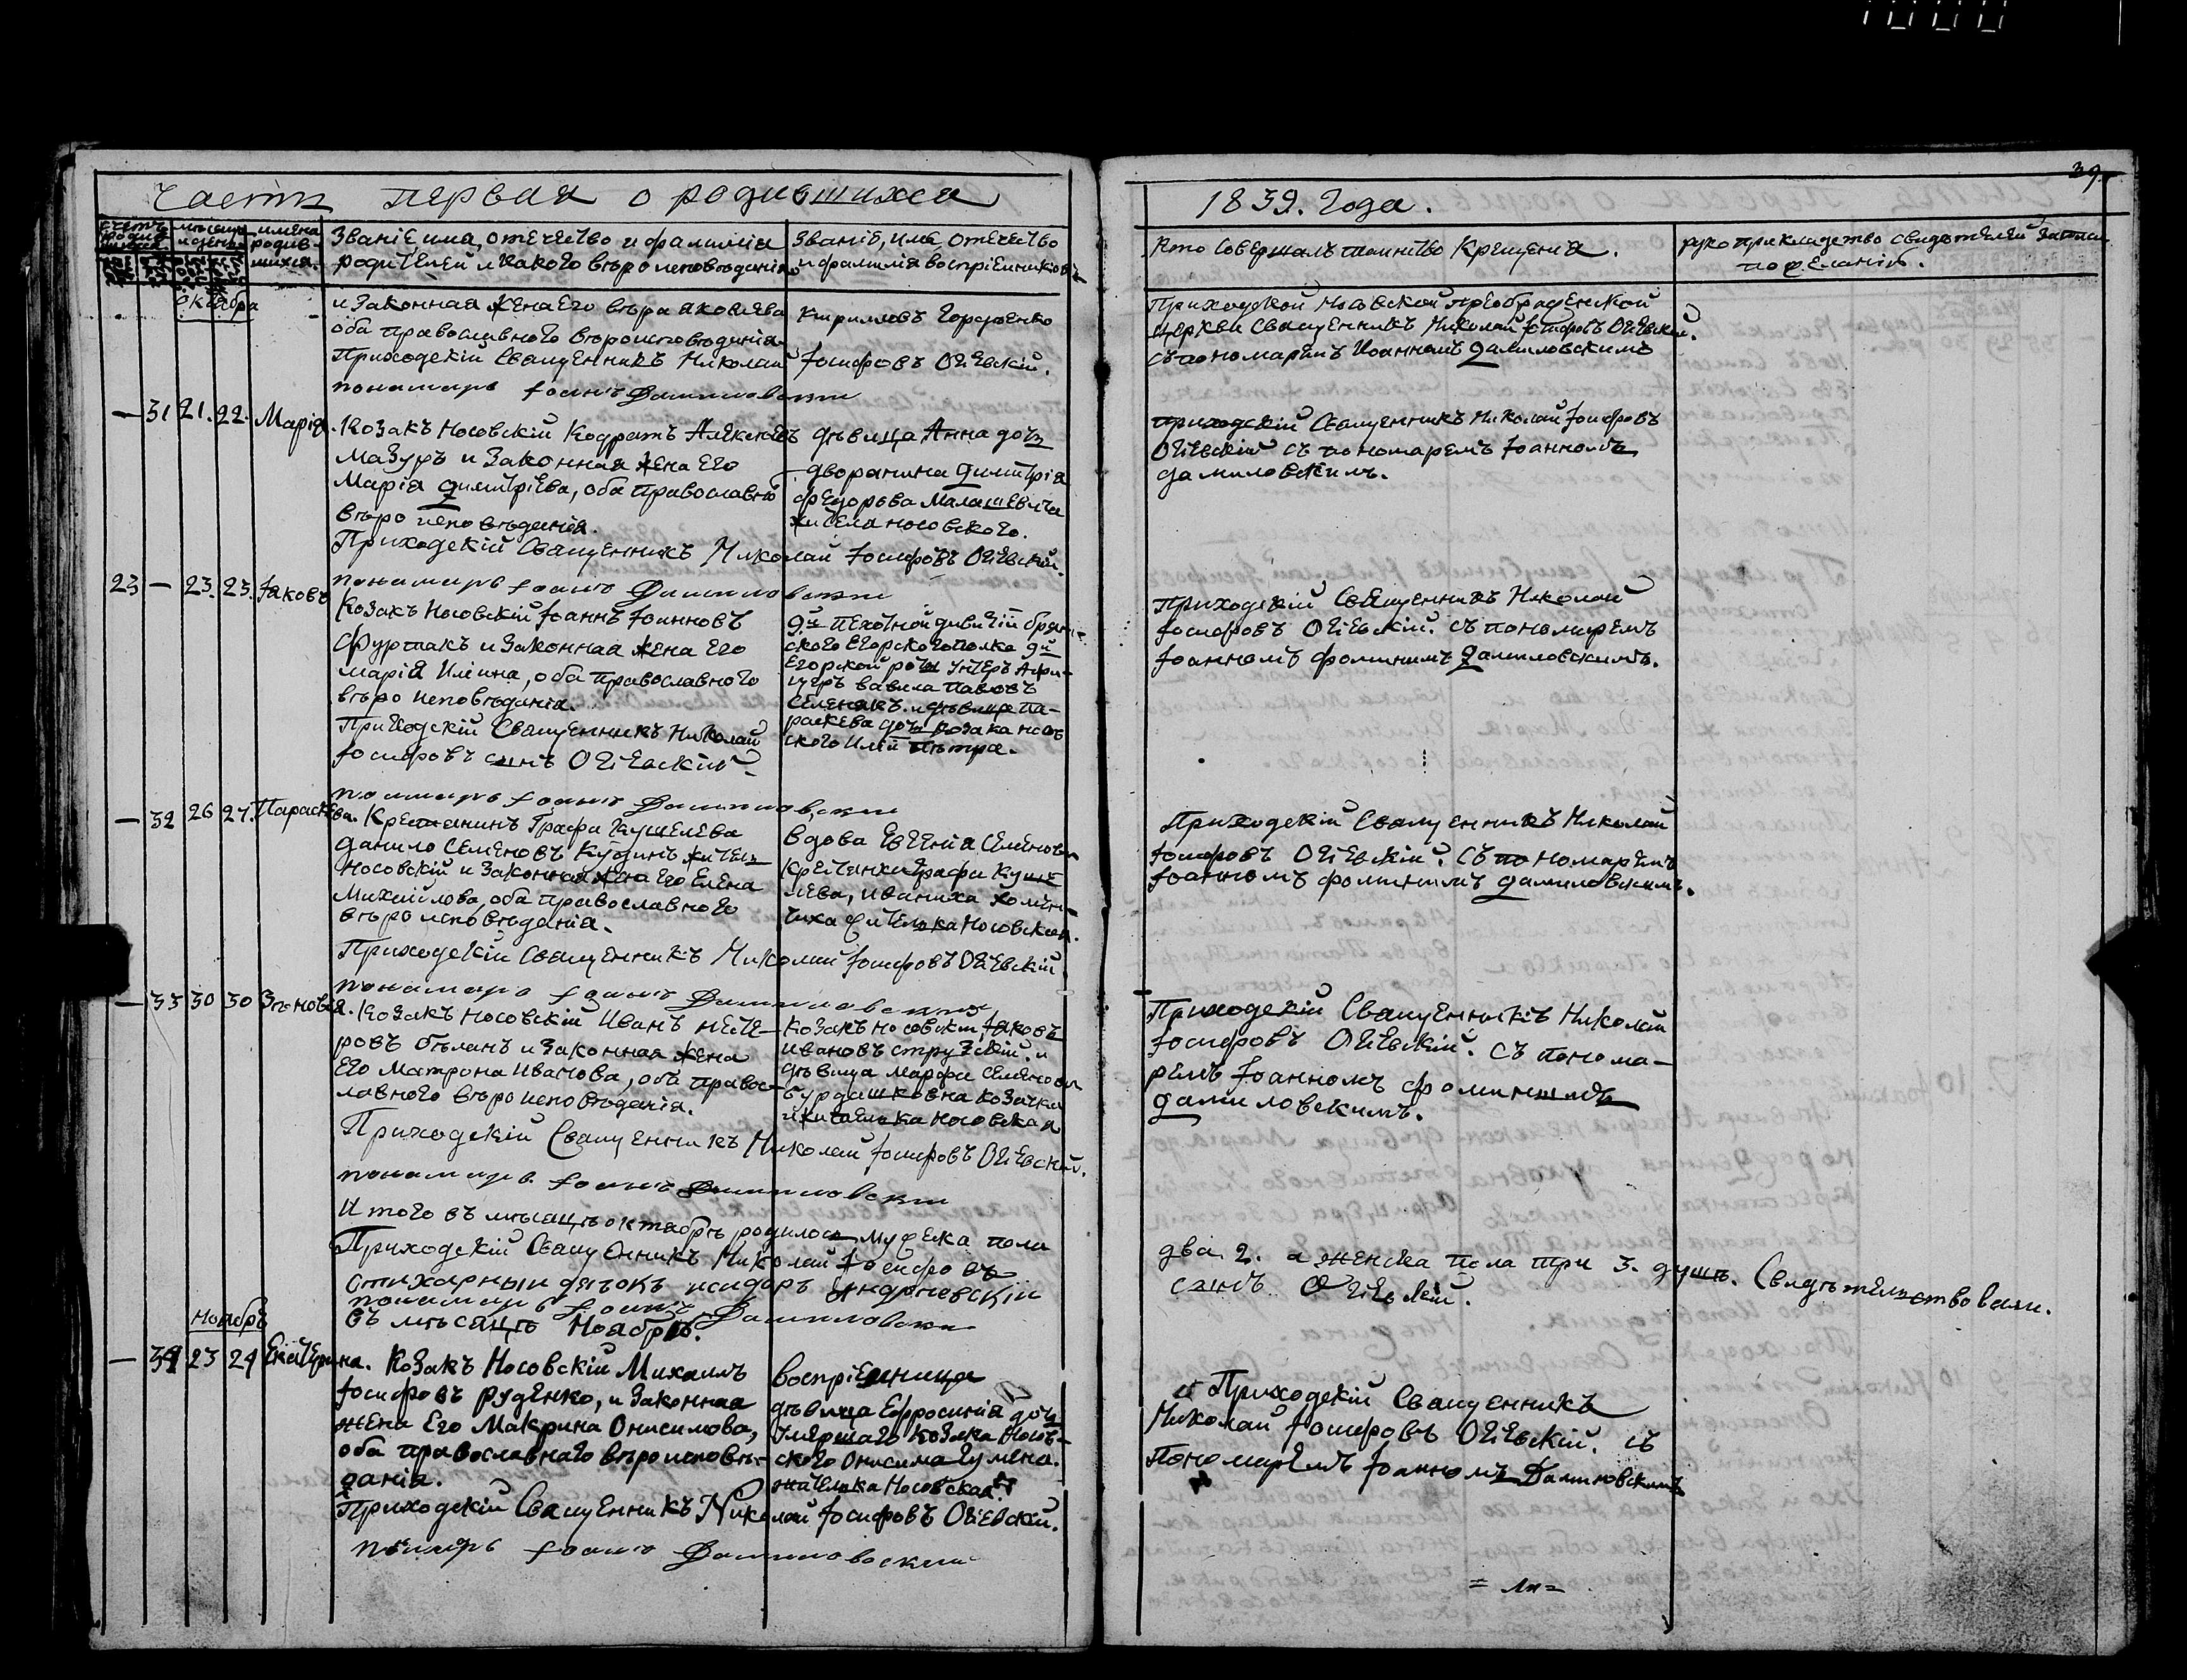 39.
Часть первая о родившихся
1839. Года.
имена
родив-
шихся.
Званіе, имя, отечество и фамилія
родителей и какого вѣроисповѣданія
Званіе, имя, отечество
и фамилія воспріемниковъ
Кто совершалъ таинство Крещенія.
рукоприкладство свидѣтелей записи
по желанію.
Октября
и законная жена его вѣра яковлева
оба православного вѣроисповѣданія
Приходскій Священникъ Николай Іосифовъ Огіевскій.
пономарь Іоаннъ Даниловскій
Кириловъ Гордѣенко
Приходской Носовской преображенской
церкви Священникъ Николай Іосифовъ Огіевскій.
съ пономаремъ Иоанномъ даниловскимъ
— 31 21. 22. Марія.
Козакъ Носовскій Кодратъ Алексѣевъ
Мазуръ и законная жена его
Марія димитріева, оба православно
вѣро исповѣданія.
Приходскій Священникъ Николай Іосифовъ Огіевскій.
пономарь Іоаннъ Даниловскій
дѣвица Анна дочь
дворянина димитрія
федорова Малашевича
жи села носовского.
приходскій Священникъ Николай Іосифовъ
Огіевскій съ пономаремъ Іоанномъ
даниловскимъ.
23 — 23. 23. Іаковъ
Козакъ Носовскій Іоаннъ Іоанновъ
Фурпакъ и законная жена его
марія Илійна, оба православного
вѣро исповѣданія.
Приходскій Священникъ Николай
Іосифовъ сынъ Огіевскій
пономарь Іоаннъ Даниловскій
9й пехотной дивизіи брян-
ского егорского полка 9й
Егорской роты унтеръ Афи-
церъ вавила павловъ
Семенякъ. и дѣвица па-
раскева дочь козака носов
ского Иліи
Приходскій Священникъ Николай
Іосифовъ Огіевскій. съ пономаремъ
Іоанномъ фоминимъ даниловскимъ.
— 32 26 27. Параскева.
Крестянинъ Графа Кушелева
данило Семеновъ Кудинъ житель
Носовскій и законная жена его Елена
Михайлова, оба православного
вѣро исповѣданія.
Приходскій Священникъ Николай Іосифовъ Огіевскій
пономарь Іоаннъ Даниловскій
вдова Евгенія Семенова
крестянка графа Куше
лева, иваниха
жителька Носовская.
Приходскій Священникъ Николай
Іосифовъ Огіевскій. съ пономаремъ
Іоанномъ фоминимъ даниловскимъ.
— 33 30 30 Зѣновія.
Козакъ Носовскій Иванъ несте-
ровъ бѣланъ и законная жена
его Матрона Иванова, оба правос-
лавного вѣро исповѣданія.
Приходскій Священникъ Николай Іосифовъ Огіевскій.
пономарь Іоаннъ Даниловскій
козакъ носовскій Іаковъ
ивановъ струзскій. и
дѣвица марфа Семенова
бурдашковна козачка
жителька носовская
Приходскій Священникъ Николай
Іосифовъ Огіевскій. съ понома-
ремъ Іоанномъ фоминимъ
даниловскимъ.
Итого въ мѣсяцѣ октябрѣ родилось мужеска пола
два 2. а женска пола три 3. душъ. Свидѣтельствовали.
Приходскій Священникъ Николай Іосифовъ
сынъ Огіевскій.
стихарный дячокъ исидоръ Андріевскій
пономарь Іоаннъ Даниловскій
Ноябрь
въ мѣсяцѣ Ноябрѣ.
— 34 23 24 Екатерина.
Козакъ Носовскій Михаилъ
Іосифовъ руденко, и законная
жена Его Макрина Онисимова,
оба православнаго вѣроисповѣ-
данія.
Приходскій Священникъ Николай Іосифовъ Огіевскій.
пономарь Іоаннъ Даниловскій
воспріемница
дѣвица Ефросинія дочь
умершаго козака носов-
ского Онисима Гумена.
жителька Носовская.
Приходскій Священникъ
Николай Іосифовъ Огіевскій. съ
пономаремъ Іоанномъ Даниловскимъ